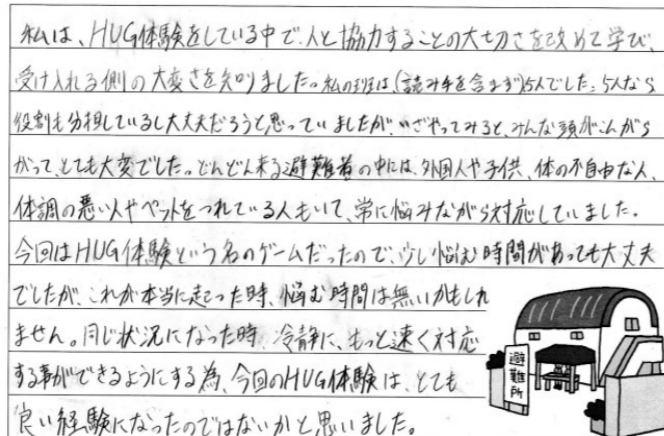 私は、HUG体験をしている中で、人と協力することの大切さを改めて学び、
受け入れる側の大変さを知りました。私の班は(読み手を含まず)5人でした。5人なら
役割も分担しているし大丈夫だろうと思っていましたが、いざやってみると、みんな頭がこんがら
がって、とても大変でした。どんどん来る避難者の中には、外国人や子供、体の不自由な人、
体調の悪い人やペットをつれている人もいて、常に悩みながら対応していました。
今回はHUG体験という名のゲームだったので、少し悩む時間があっても大丈夫
でしたが、これが本当に起こった時、悩む時間は無いかもしれ
ません。同じ状況になった時、冷静に、もっと速く対応
する事ができるようにする為、今回のHUG体験は、とても
良い経験になったのではないかと思いました。
避難所